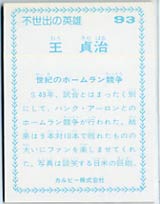 不世出の英雄 93
おう さだ はる
王 貞治
世紀のホームラン競争
S.49年、試合とはまったく別
にして、ハンク・アーロンと
のホームラン競争が行われた。結
果は9本対10本で敗れたものの
大いにファンを楽しませてくれ
た。写真は談笑する日米の巨砲。
カルビー株式会社